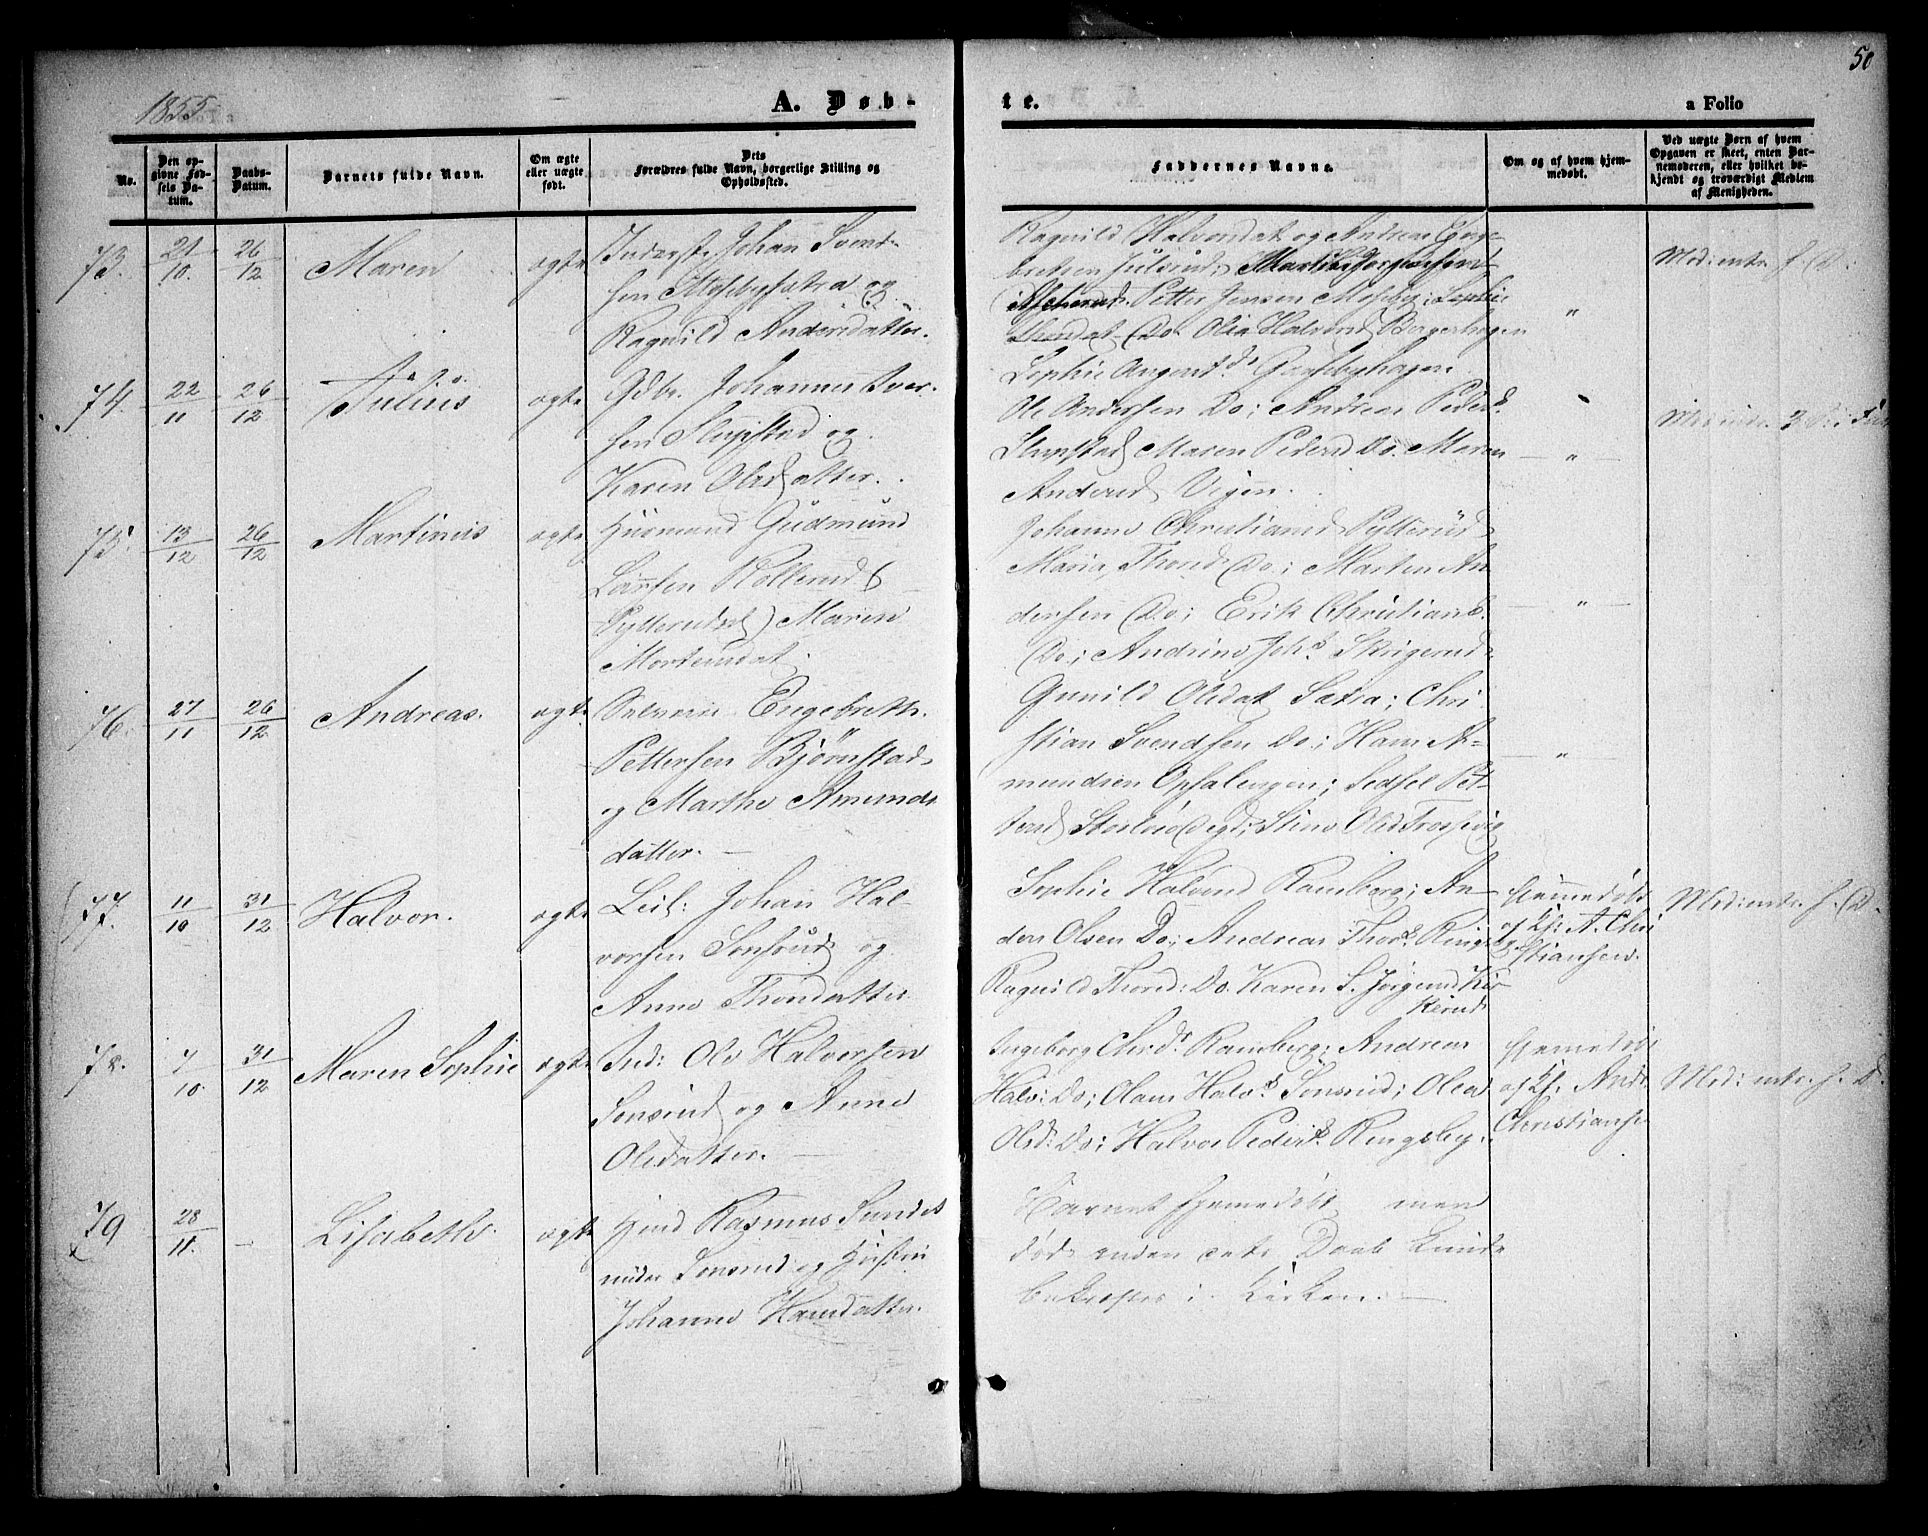 50
1855
A. Døb-
te.
a Folio
No.
Den op-
givne Fød-
sels Da-
tum.
Daabs-
Datum.
Barnets fulde Navn.
Om ægte
eller uægte
født.
Dets
Forældres fulde Navn, borgerlige Stilling og
Opholdssted.
Faddernes Navne.
Om og af hvem hjem-
medøbt.
Ved uægte Børn af hvem
Opgaven er skeet, enten Bar-
nemoderen, eller hvilket be-
kjendt og troværdigt Medlem
af Menigheden.
73.
21/10.
26/12
Maren
ægte
Inderst Johan Svend-
sen Mosebysætra og
Ragnild Andersdatter.
Ragnild Halvorsdat og Andreas Enge-
bretsen Julsrud;
Petter Jensen Moseby; Sophie
Thorsdat Do Olia Halvorsd Bergerhagen
"
Mod: intr. f. D.
74.
22/11
26/12
Julius
ægte
Gdbr. Johannes Iver-
sen Slupstad og
Karen Olsdatter.
Sophie
Ole Andersen Do; Andreas Peders.
Slupstad Maren Pedersd Do. Maren
Andersd Vigen.
"
75.
13/12
26/12
Martinus
ægte
Huusmand Gudmund
Larssen Kollerud
Pytterudset) Maren
Mortensdat.
Johanne Christiansd Pytterud
Maria Thorsd Do; Morten An-
dersen Do; Erik Christians.
Do; Andrine Joh.d Skigerud
"
76.
27/11
26/12
Andreas.
ægte
Selveier Engebreth
Pettersen Bjørnstad
og Marthe Amunds
datter.
Gunild Olsdat Sætra; Chri
stian Svendsen Do; Hans A-
mundsen Opsalengen; Sidsel Pet-
tersd
"
77.
11/10
31/12
Halvor.
ægte
Leil: Johan Hal-
vorsen Sonsrud og
Anne Thorsdatter
Sophie Halvorsd Ramberg; An-
ders Olsen Do; Andreas Thors. Ringsby
Ragnild Thorsd: Do. Karen S. Jørgensd Kis
kerud
Hjemmedøbt
af Kfs A. Chri
stiansen.
Mod: intr. f. D.
78.
7/10.
31/12
Maren Sophie
ægte
Ind: Ole Halvorsen
Sonsrud og Anne
Olsdatter.
Ingeborg Chrd. Ramberg; Andreas
Halv: Do; Olam Halvs Sonsrud; Olea
Olsd: Do; Halvor Peders Ringsby.
Hjemedøbt
af Kfs. Andr.
Christianse
Mod: intr. f. D.
79
x
28/11.
Lisabeth.
ægte
Hmd Rasmus Sundet
under Sonsrud og Hustru
Johanne Hansdatter.
Barnet hjemedøbt men
døde inden dets Daab kunde
bekræftes i Kirken.